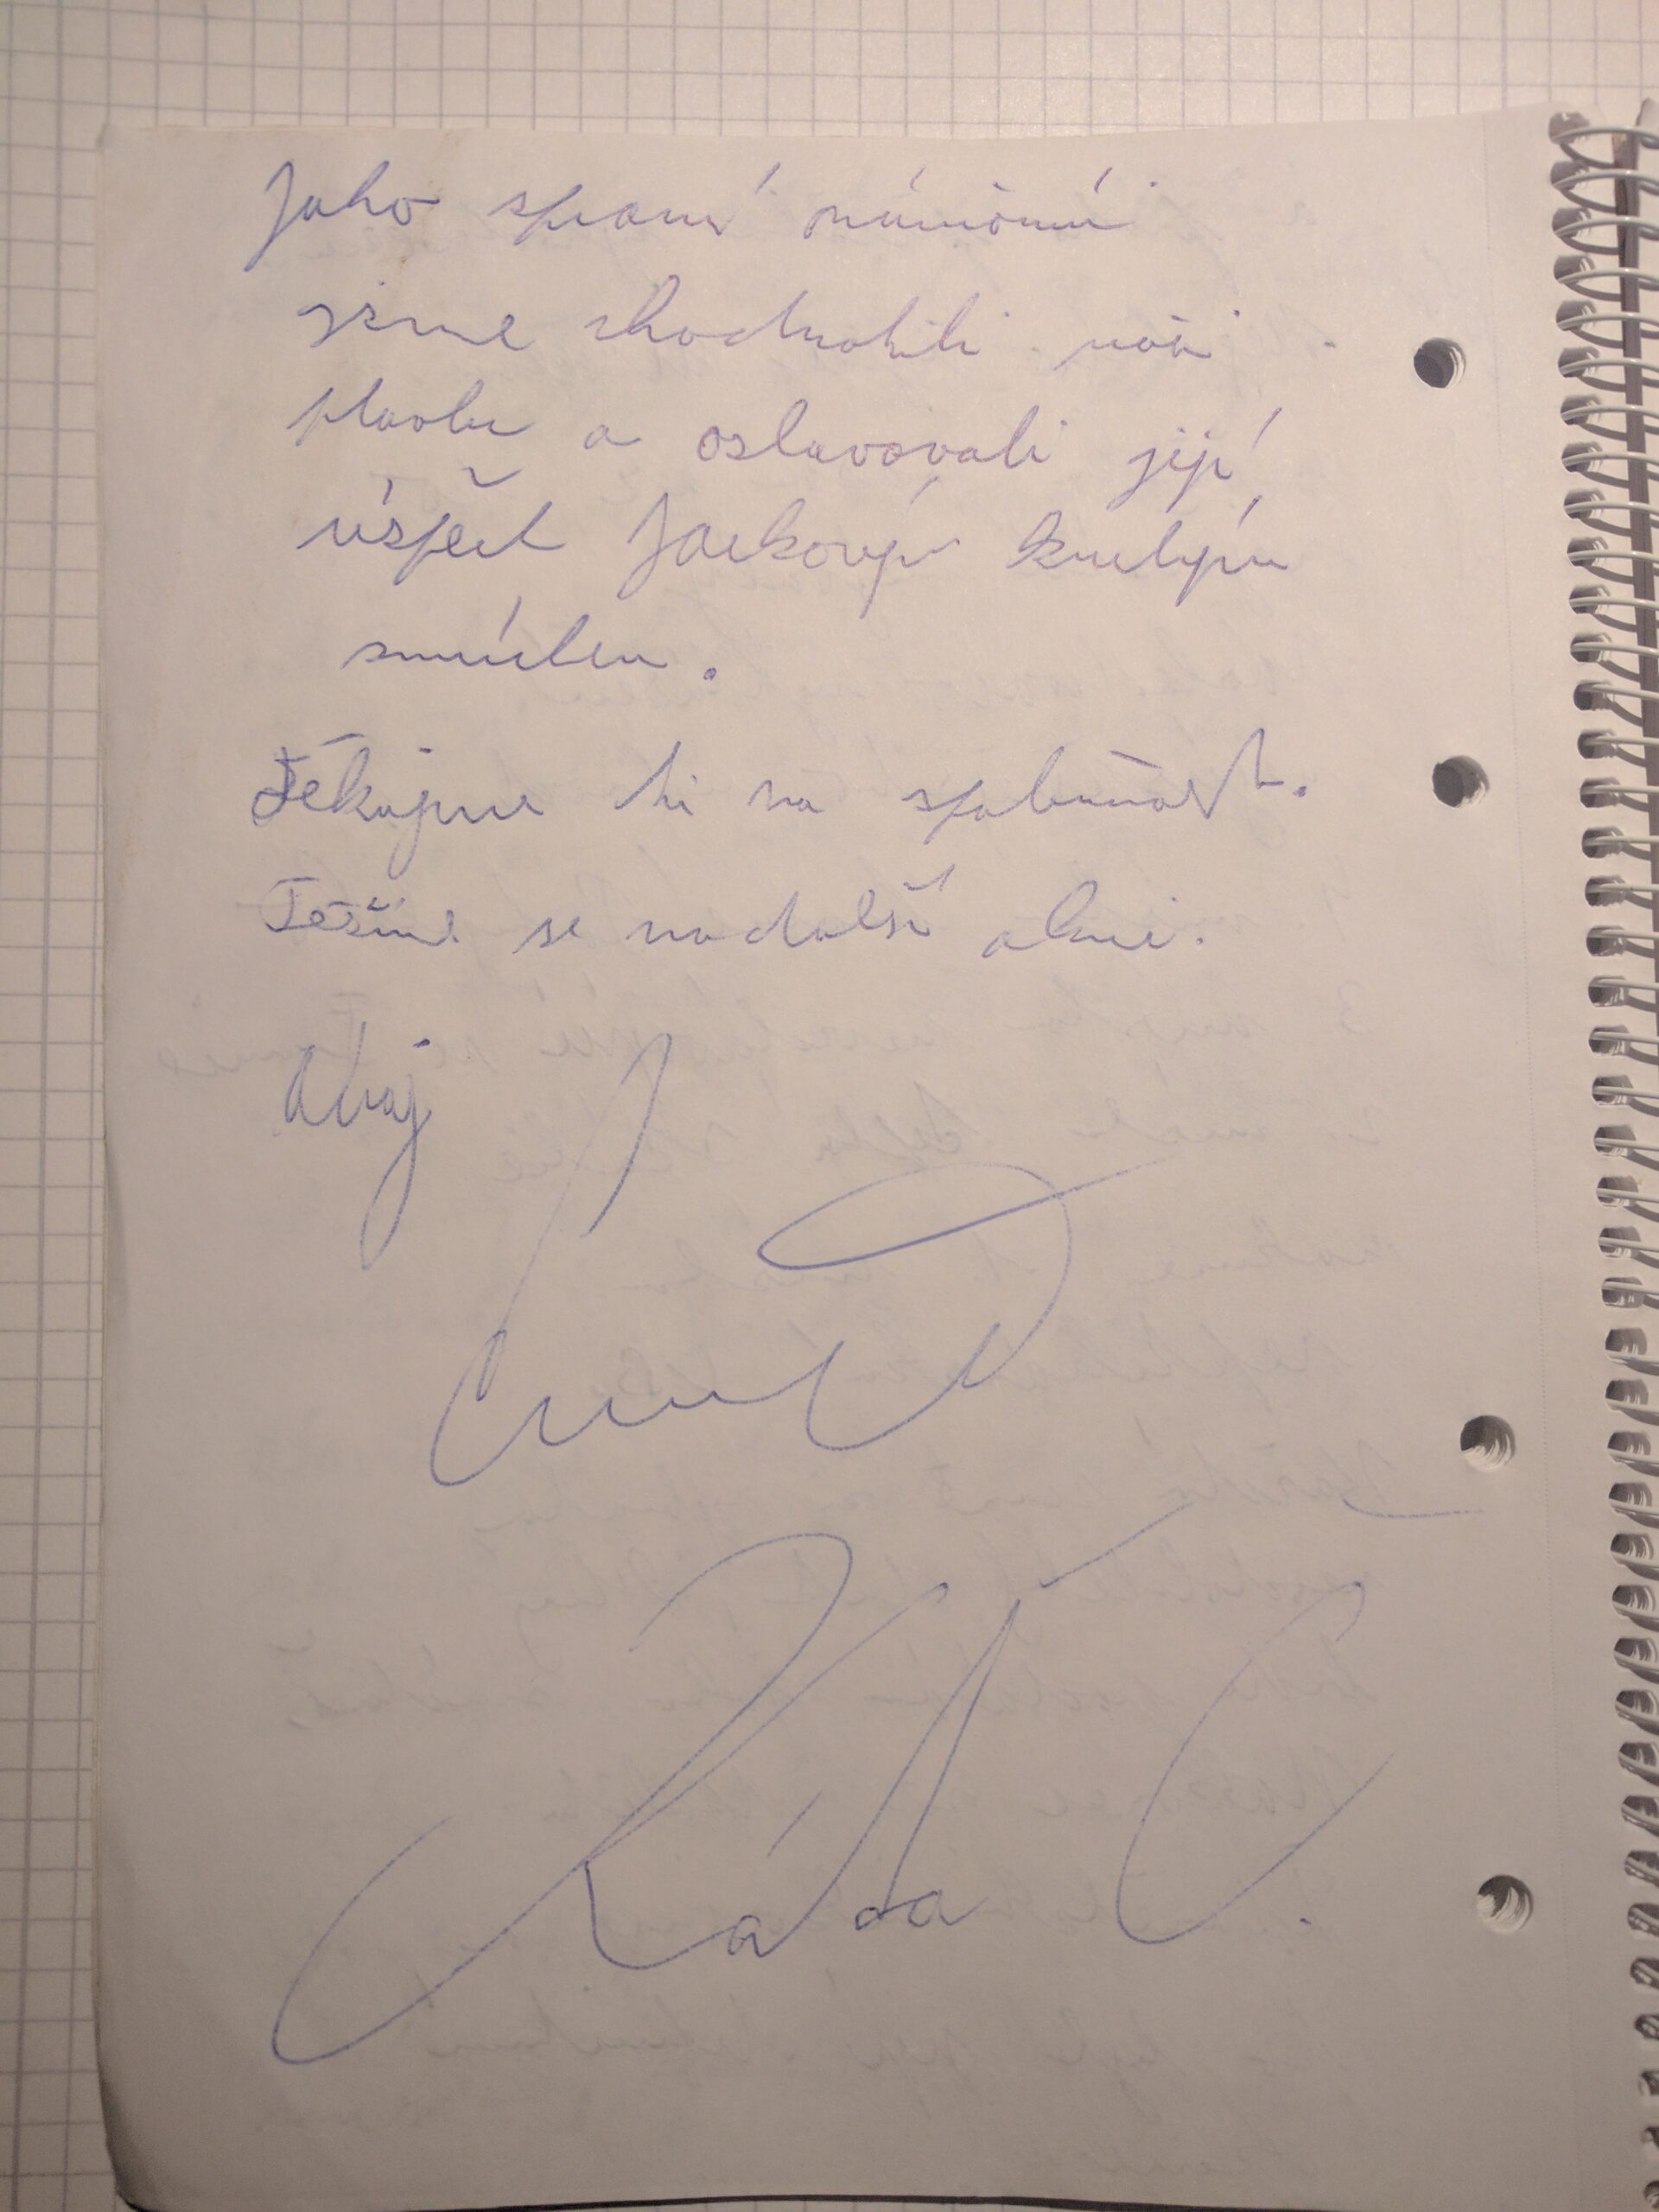 Jako správní námořníci
jsme zhodnotili naši
plavbu a oslavovali její
úspěch Jackovým
.
Děkujeme ti za společnost.
Těšíme se na další akci.
Ahoj
Káďa